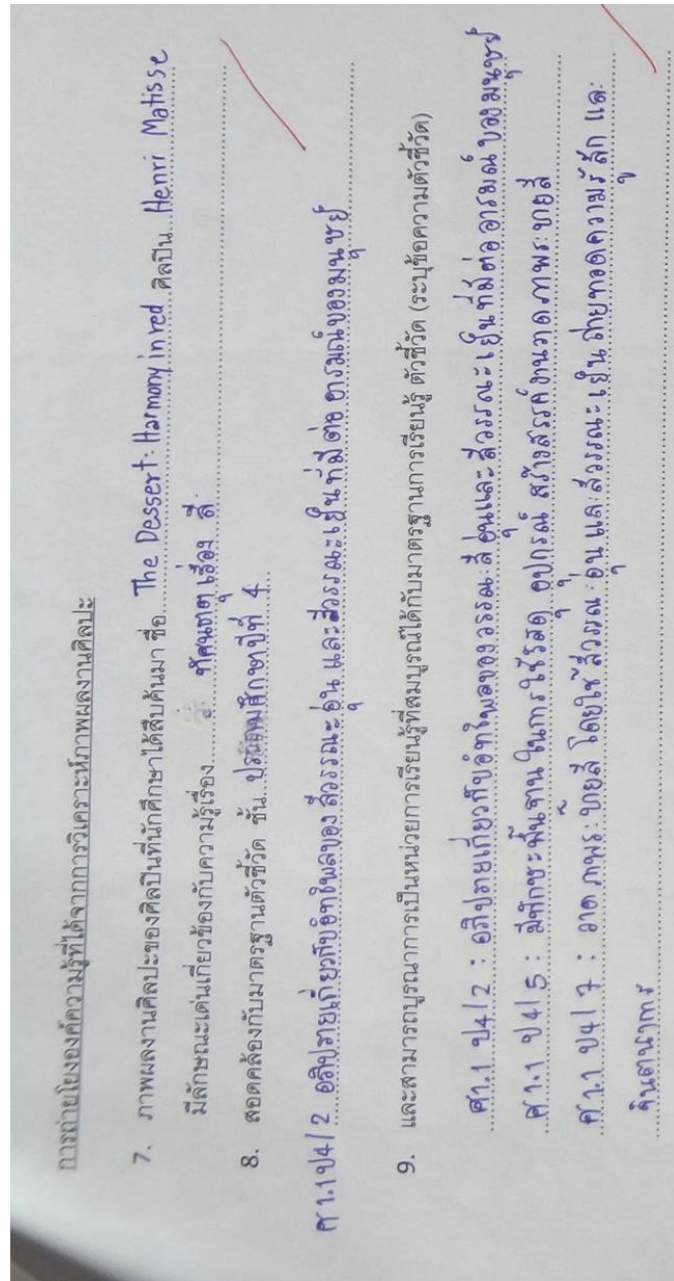 การถ่ายโยงองค์ความรู้ที่ได้จากการวิเคราะห์ภาพผลงานศิลปะ
7. ภาพผลงานศิลปะของศิลปินที่นักศึกษาได้สืบค้นมา ชื่อ The Dessert: Harmony in red ศิลปิน Henri Matisse
มีลักษณะเด่นเกี่ยวข้องกับความรู้เรื่อง ทัศนธาตุ เรื่อง สี
8. สอดคล้องกับมาตรฐานตัวชี้วัด ชั้น ประถมศึกษาปีที่ 4
ศ 1.1 ป4/2 อภิปรายเกี่ยวกับอิทธิพลของ สีวรรณะอุ่น และสีวรรณะเย็นที่มีต่อ อารมณ์ของมนุษย์
9. และสามารถบูรณาการเป็นหน่วยการเรียนรู้ที่สมบูรณ์ได้กับมาตรฐานการเรียนรู้ ตัวชี้วัด (ระบุข้อความตัวชี้วัด)
ศ1.1 ป4/2 : อภิปรายเกี่ยวกับอิทธิพลของวรรณะสีอุ่นและสีวรรณะเย็นที่มีต่ออารมณ์ของมนุษย์
ศ1.1 ป4/5 : มีทักษะพื้นฐานในการใช้วัสดุ อุปกรณ์ สร้างสรรค์งานวาดภาพระบายสี
ศ1.1 ป4/7 : วาดภาพระบายสี โดยใช้สีวรรณะอุ่นและสีวรรณะเย็น ถ่ายทอดความรู้สึก และ
จินตนาการ